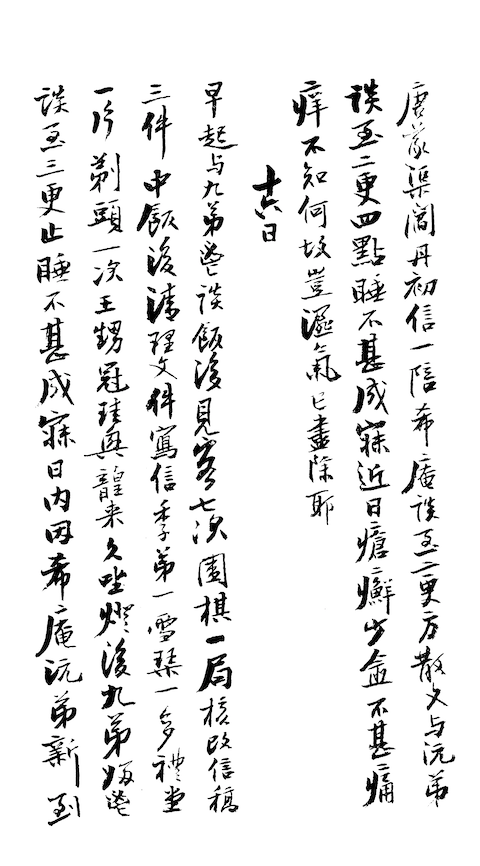 唐蒙渠閻丹初信一陪希庵談至二更方散又与沅弟
談至二更四點睡不甚成寐近日瘡癬少愈不甚痛
痒不知何故豈濕氣已盡除耶
十六日
早起与九弟鬯談飯後見客七次圍棋一局核改信稿
三件中飯後清理文件寫信季弟一雪琴一多禮堂
一片剃頭一次王甥冠珪與韹来久坐燈後九弟鬯
談至三更止睡不甚成寐日内因希庵沅弟新到